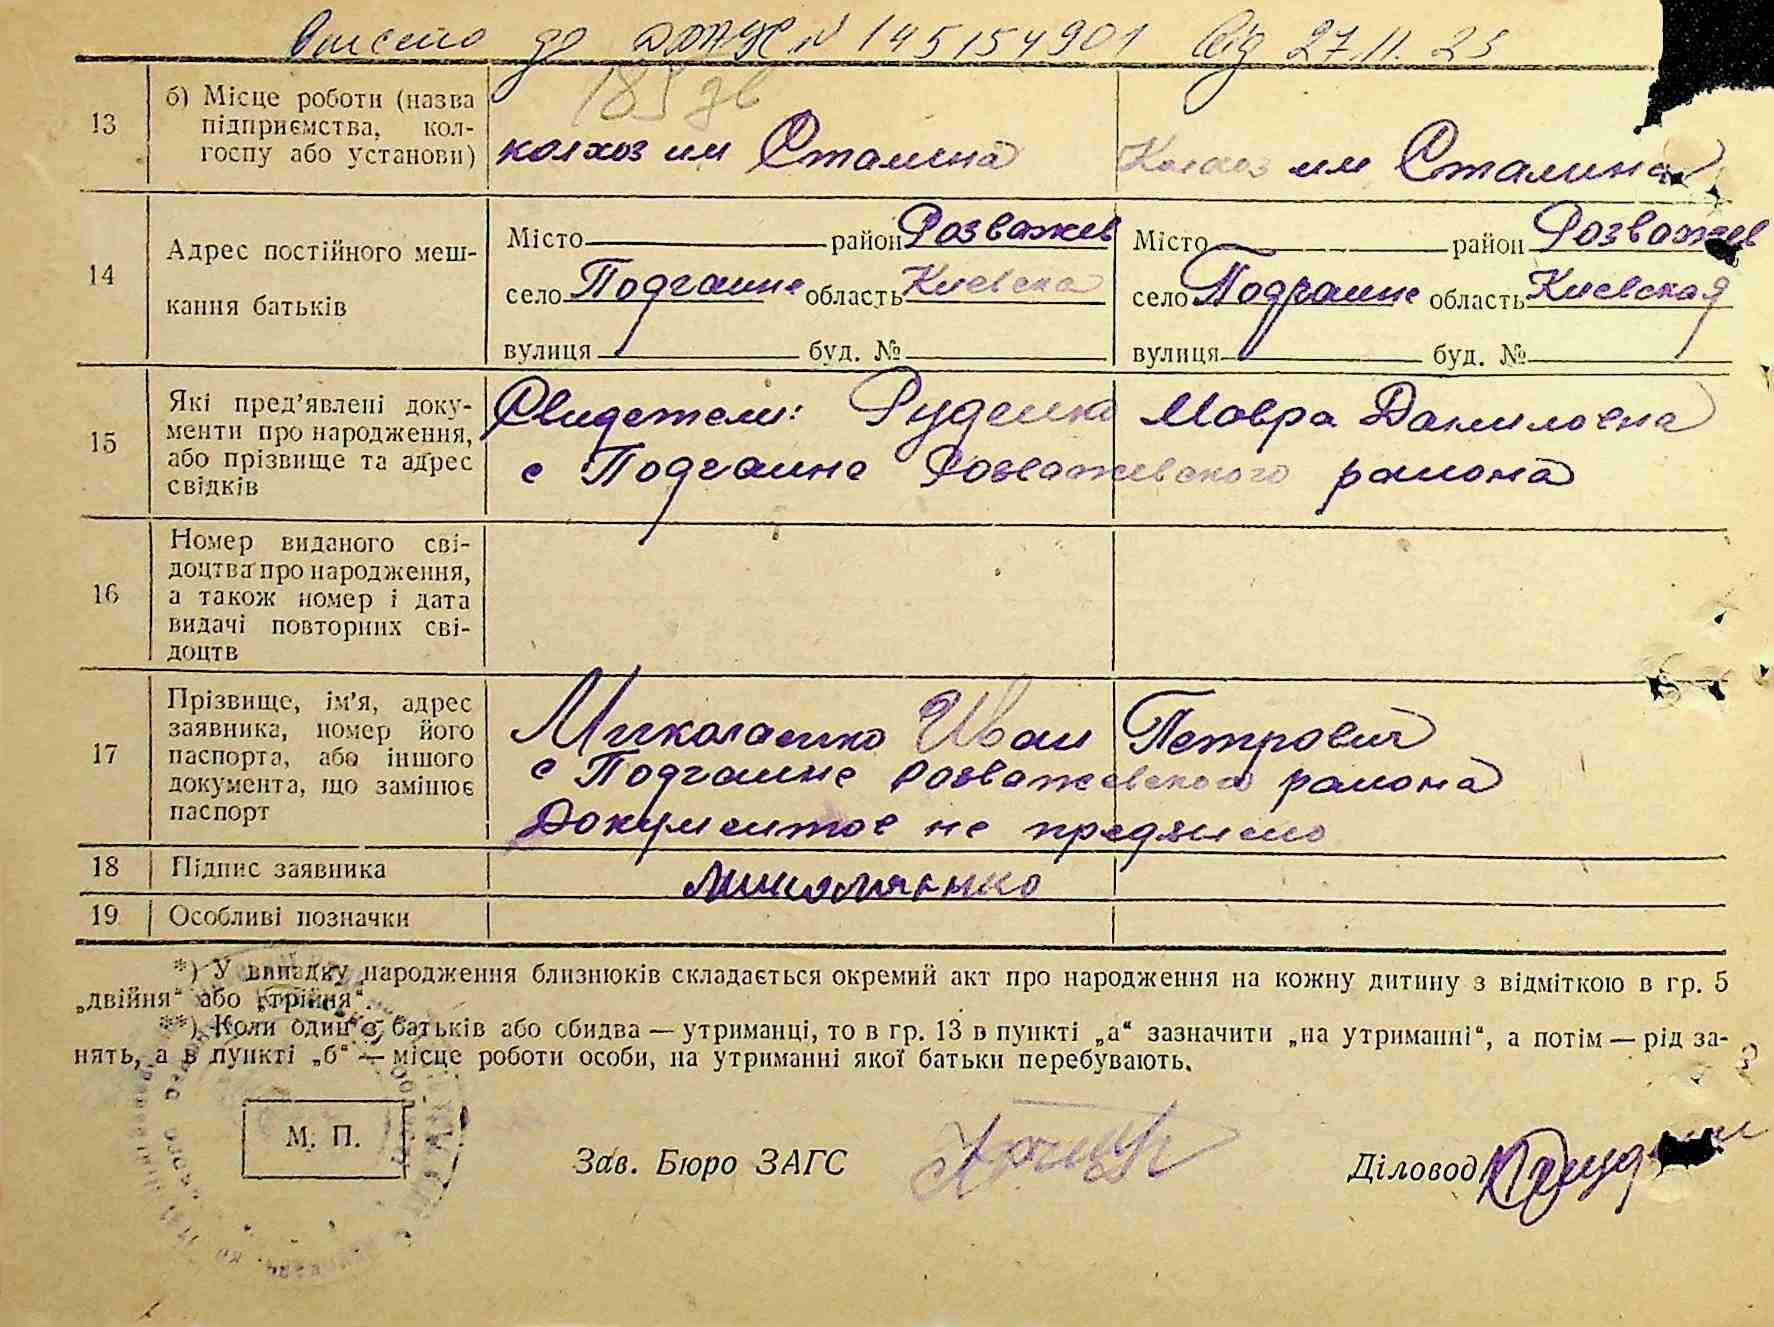 Внесено до ДРАЦС № 145154901 від 27.11.23
185 зв
13
б) Місце роботи (назва
підприємства, кол-
госпу або установи)
колхоз им Сталина
Колхоз им Сталина
14
Адрес постійного меш-
кання батьків
Місто район Розважев
село Подгайне область Киевска
вулиця буд. №
Місто район Розважев
село Подгайне область Киевская
вулиця буд. №
15
Які пред’явлені доку-
менти про народження,
або прізвище та адрес
свідків
Свидетели: Руденко Мовра Даниловна
с Подгайне Розважевского района
16
Номер виданого сві-
доцтва про народження,
а також номер і дата
видачі повторних сві-
доцтв
17
Прізвище, ім’я, адрес
заявника, номер його
паспорта, або іншого
документа, що замінює
паспорт
Миколаенко Иван Петрович
с Подгайне Розважевского района
Документов не предявлено
18
Підпис заявника
Николаенко
19
Особливі позначки
*) У випадку народження близнюків складається окремий акт про народження на кожну дитину з відміткою в гр. 5
„двійня“ або „трійня“.
**) Коли один з батьків або обидва — утриманці, то в гр. 13 в пункті „а“ зазначити „на утриманні“, а потім — рід за-
нять, а в пункті „б“ — місце роботи особи, на утриманні якої батьки перебувають.
М. П.
Зав. Бюро ЗАГС
Діловод